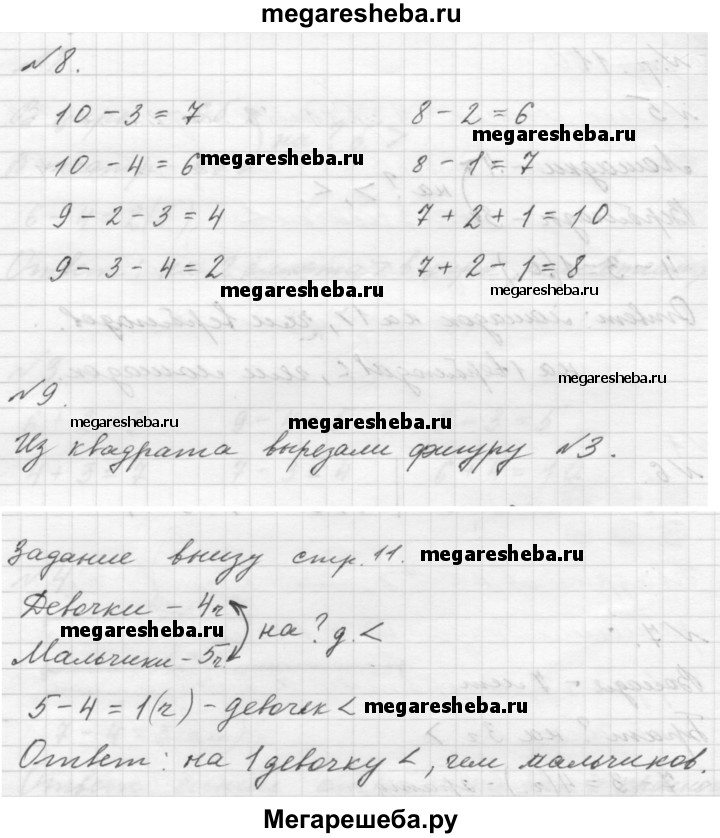 megaresheba.ru
№8.
10 - 3 = 7 8 - 2 = 6
megaresheba.ru
10 - 4 = 6 megaresheba.ru 8 - 1 = 7
9 - 2 - 3 = 4 7 + 2 + 1 = 10
9 - 3 - 4 = 2 7 + 2 - 1 = 8
megaresheba.ru megaresheba.ru
megaresheba.ru
№9.
megaresheba.ru megaresheba.ru
Из квадрата вырезали фигуру №3.
Задание внизу стр. 11. megaresheba.ru
Девочки - 4ч
megaresheba.ru на ? д. <
Мальчики - 5ч
5 - 4 = 1(ч) - девочек < megaresheba.ru
Ответ: на 1 девочку <, чем мальчиков.
Мегарешеба.ру